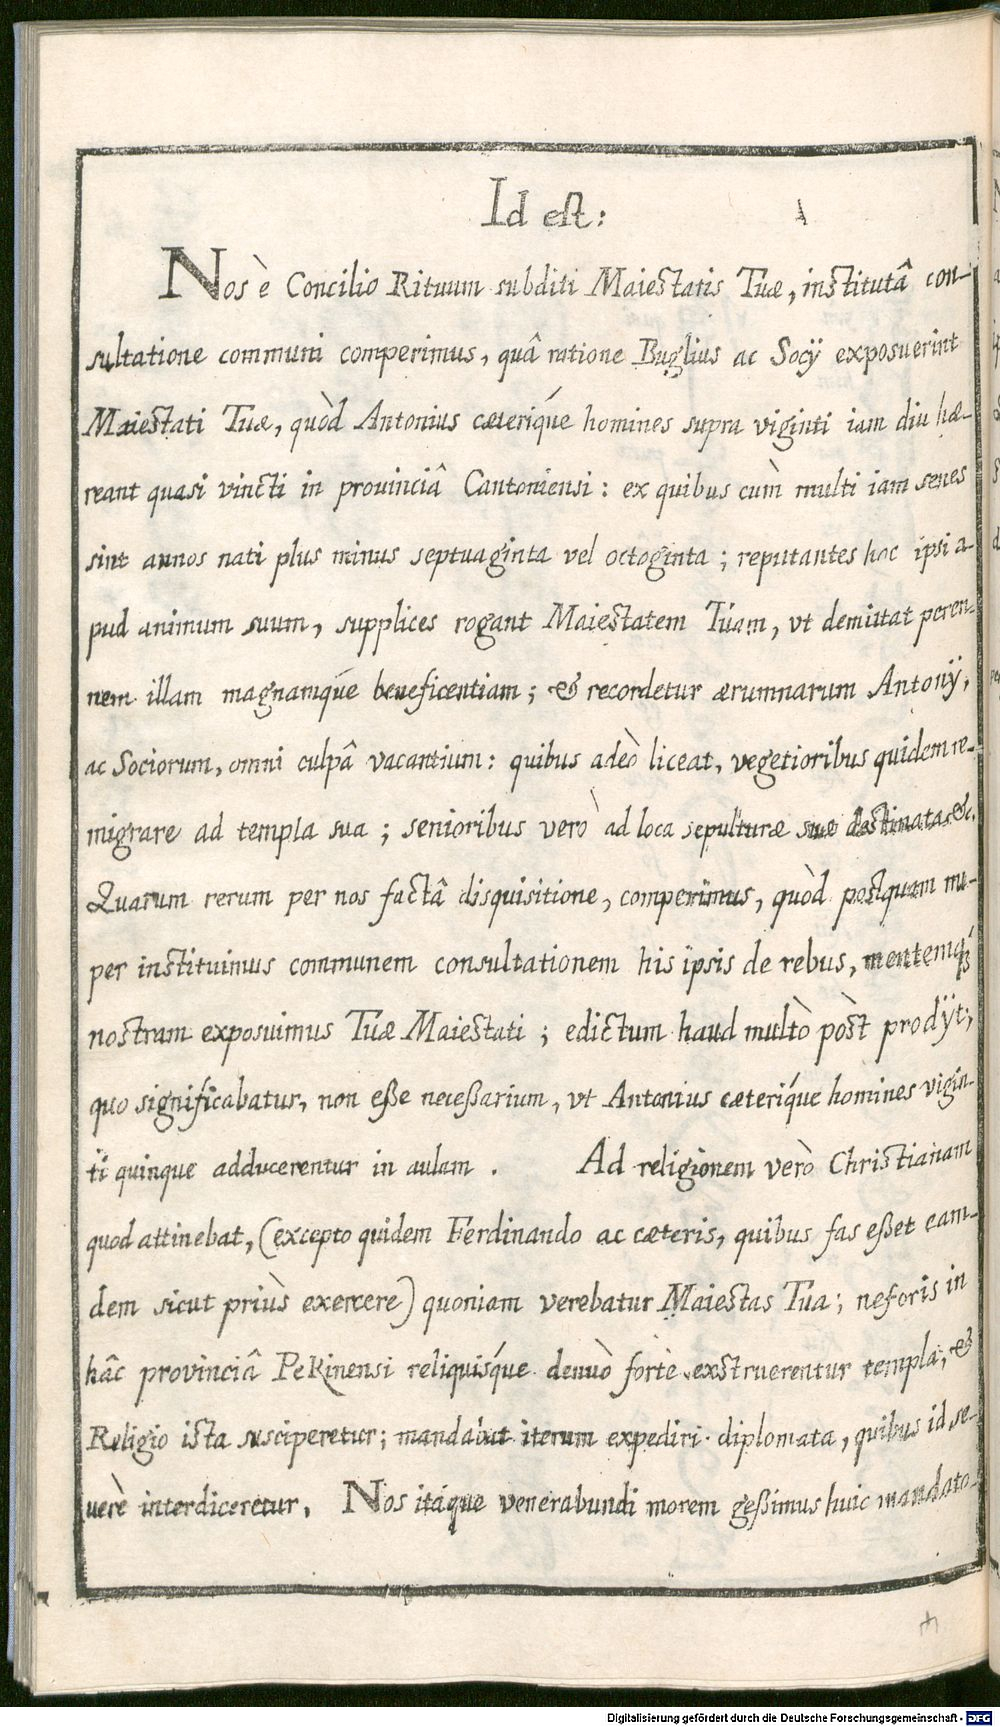 Id est:
Nos è Concilio Rituum subditi Maiestatis Tuæ, institutâ con-
sultatione communi comperimus, quâ ratione Buglius ac Socÿ exposuerint
Maiestati Tuæ, quòd Antonius cæteríque homines supra viginti iam diu hæ-
reant quasi vincti in prouinciâ Cantoniensi: ex quibus cùm multi iam senes
sint annos nati plus minus septuaginta vel octoginta; reputantes hoc ipsi a-
pud animum suum, supplices rogant Maiestatem Tuam, vt demittat peren-
nem illam magnamque beneficentiam; & recordetur ærumnarum Antonÿ,
ac Sociorum, omni culpâ vacantium: quibus adeò liceat, vegetioribus quidem re-
migrare ad templa sua; senioribus verò ad loca sepulturæ suæ destinata &c.
Quarum rerum per nos factâ disquisitione, comperimus, quòd postquam nu-
per instituimus communem consultationem his ipsis de rebus, mentemq́
nostram exposuimus Tuæ Maiestati; edictum haud multò pòst prodÿt;
quo significabatur, non eße neceßarium, vt Antonius cæteríque homines vigin-
ti quinque adducerentur in aulam. Ad religionem verò Christianam
quod attinebat, (excepto quidem Ferdinando ac cæteris, quibus fas eßet eam-
dem sicut priùs exercere) quoniam verebatur Maiestas Tua; ne foris in
hâc provinciâ Pekinensi reliquísque denuò fortè exstruerentur templa, &
Religio ista susciperetur; mandabat iterum expediri diplomata, quibus id se-
verè interdiceretur. Nos itáque venerabundi morem geßimus huic mandato
Digitalisierung gefördert durch die Deutsche Forschungsgemeinschaft - DFG